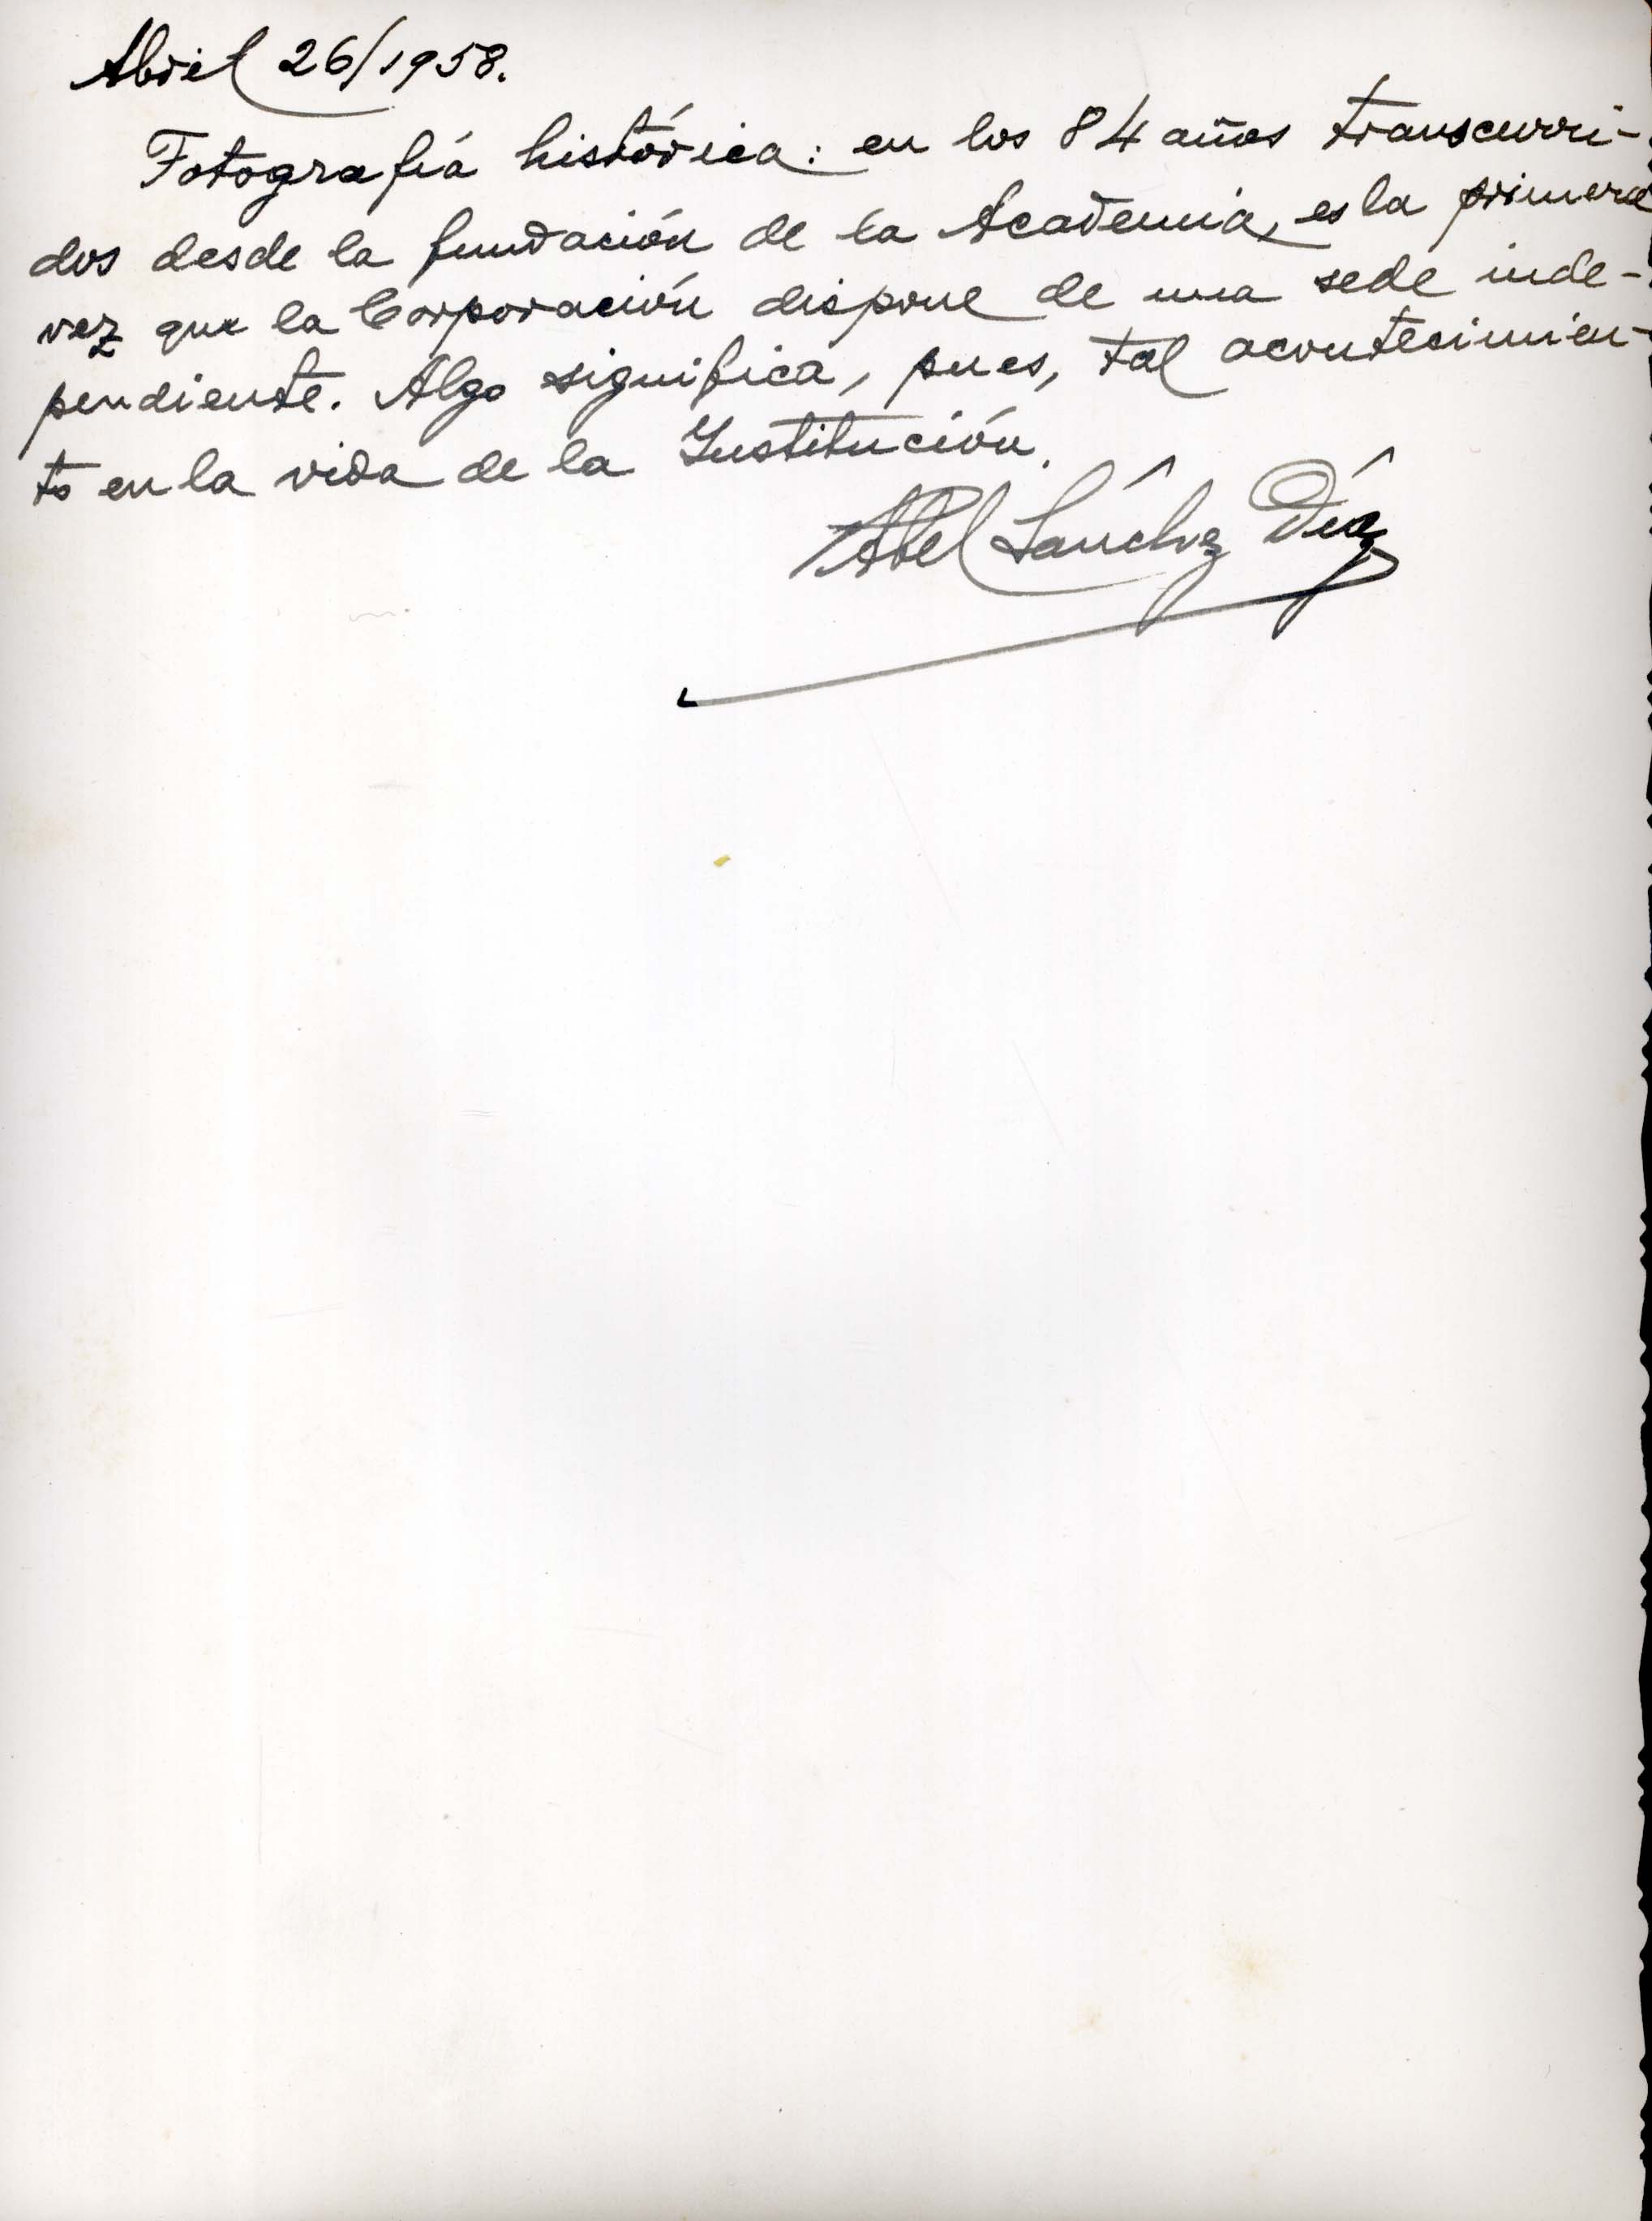 Abril 26/1958.
Fotografía histórica: en los 84 años transcurri-
dos desde la fundación de la Academia, es la primera
vez que la Corporación dispone de una sede inde-
pendiente. Algo significa, pues, tal acontecimien-
to en la vida de la Institución.
Abel Sánchez Díaz